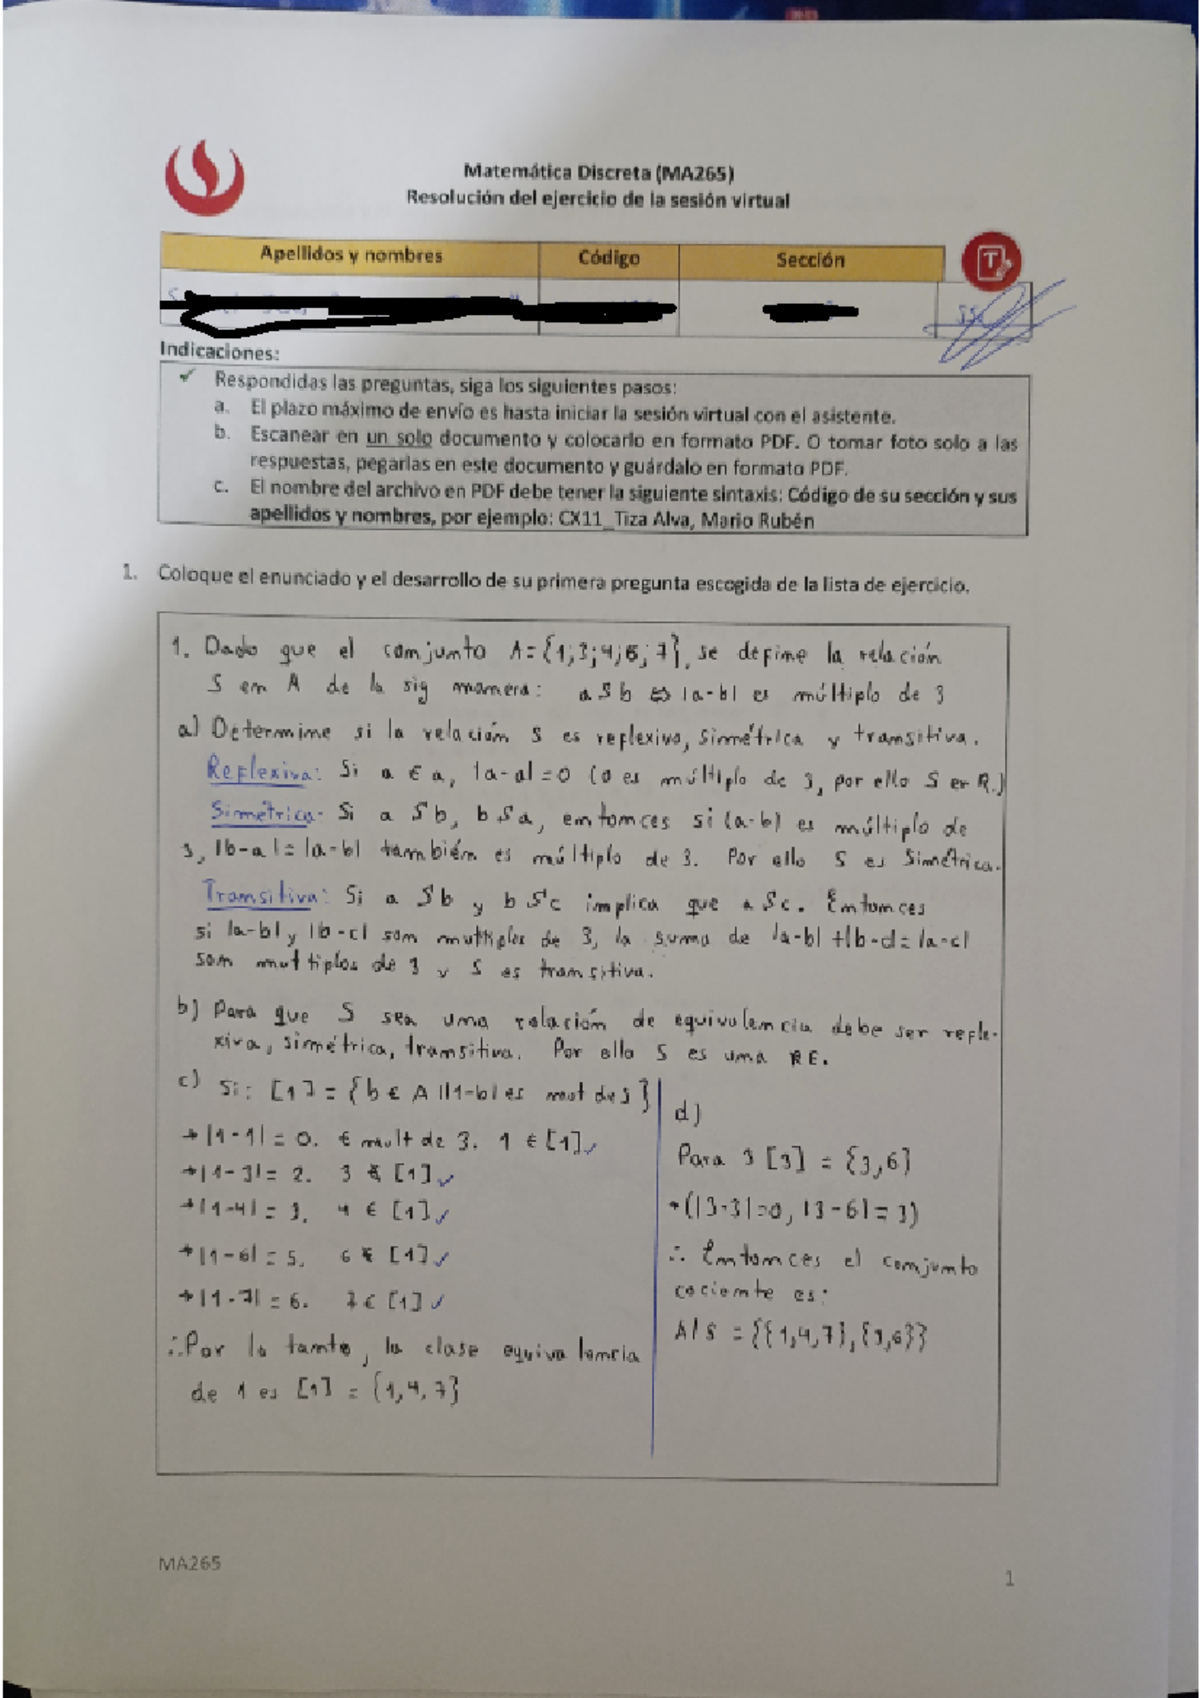 Matemática Discreta (MA265)
Resolución del ejercicio de la sesión virtual
Apellidos y nombres Código Sección
T
Indicaciones:
✓ Respondidas las preguntas, siga los siguientes pasos:
a. El plazo máximo de envío es hasta iniciar la sesión virtual con el asistente.
b. Escanear en un solo documento y colocarlo en formato PDF. O tomar foto solo a las
respuestas, pegarlas en este documento y guárdalo en formato PDF.
c. El nombre del archivo en PDF debe tener la siguiente sintaxis: Código de su sección y sus
apellidos y nombres, por ejemplo: CX11_Tiza Alva, Mario Rubén
1. Coloque el enunciado y el desarrollo de su primera pregunta escogida de la lista de ejercicio.
1. Dado que el conjunto A={1;3;4;6;7}, se define la relación
S en A de la sig manera: a S b ⇔ |a-b| es múltiplo de 3
a) Determine si la relación S es reflexiva, simétrica y transitiva.
Reflexiva: Si a ∈ a, |a-a|=0 (0 es múltiplo de 3, por ello S er R.)
Simétrica- Si a S b, b S a, entonces si (a-b) es múltiplo de
3, |b-a|=|a-b| también es múltiplo de 3. Por ello S es Simétrica.
Transitiva: Si a S b y b S c implica que a S c. Entonces
si |a-b| y |b-c| son multiplos de 3, la suma de |a-b|+|b-c|=|a-c|
son multiplos de 3 y S es transitiva.
b) Para que S sea una relación de equivalencia debe ser refle-
xiva, simétrica, transitiva. Por ello S es una RE.
c) Si: [1] = {b ∈ A ||1-b| es mut de 3}
→|1-1| = 0. ∈ mult de 3. 1 ∈ [1] ✓
→|1-3| = 2. 3 ∉ [1] ✓
→|1-4| = 3. 4 ∈ [1] ✓
→|1-6| = 5. 6 ∉ [1] ✓
→|1-7| = 6. 7 ∈ [1] ✓
∴Por lo tanto, la clase equivalencia
de 1 es [1] = {1,4,7}
d)
Para 3 [3] = {3,6}
→(|3-3|=0, |3-6|=3)
∴ Entonces el conjunto
cociente es:
A/S = {{1,4,7},{3,6}}
MA265
1